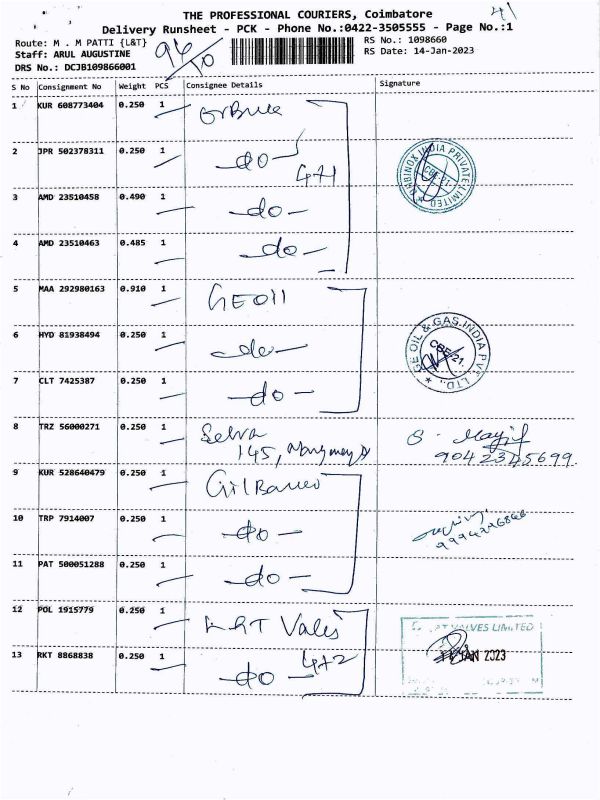 THE PROFESSIONAL COURIERS, Coimbatore
41
Delivery Runsheet - PCK - Phone No.:0422-3505555 - Page No.:1
Route: M . M PATTI {L&T}
RS No.: 1098660
Staff: ARUL AUGUSTINE
RS Date: 14-Jan-2023
DRS No.: DCJB109866001
S No Consignment No Weight PCS Consignee Details Signature
1 KUR 608773404 0.250 1
2 JPR 502378311 0.250 1 -do-
471
3 AMD 23510458 0.490 1 -do-
4 AMD 23510463 0.485 1 -do-
INDIA PRIVATE LIMITED
CBE-21.
5 MAA 292980163 0.910 1 GEOil
6 HYD 81938494 0.250 1 -do-
7 CLT 7425387 0.250 1 -do-
GE OIL & GAS INDIA PVT. LTD.,
CBE-21.
8 TRZ 56000271 0.250 1 Selva
145,
9 KUR 528640479 0.250 1
10 TRP 7914007 0.250 1 -do-
11 PAT 500051288 0.250 1 -do-
12 POL 1915779 0.250 1 L&T Valves
VALVES LIMITED
13 RKT 8868838 0.250 1 -do- 472
JAN 2023